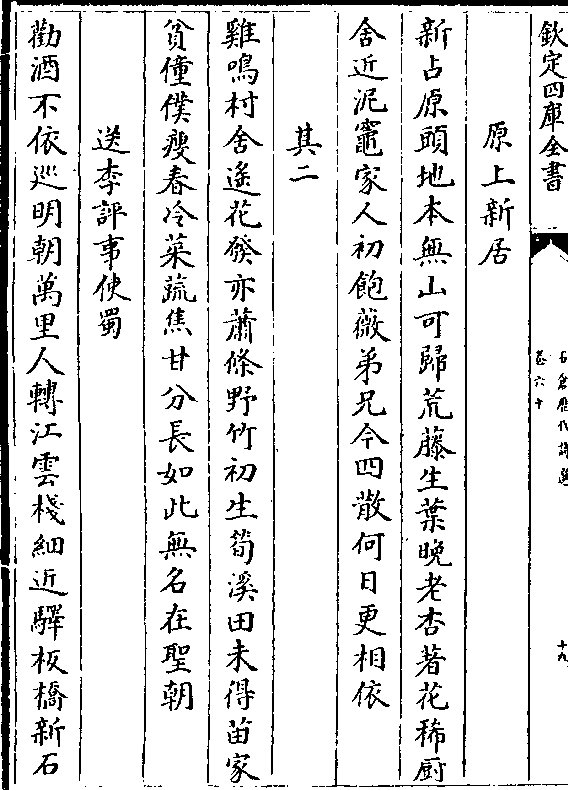 欽定四庫全書
石倉歷代詩選
卷六十
十九
原上新居
新占原頭地本無山可歸荒藤生葉晚老杏著花稀厨
舍近泥竈家人初飽薇弟兄今四散何日更相依
其二
雞鳴村舍遙花發亦蕭條野竹初生筍溪田未得苗家
貧僮僕瘦春冷菜蔬焦甘分長如此無名在聖朝
送李評事使蜀
勸酒不依巡明朝萬里人轉江雲棧細近驛板橋新石